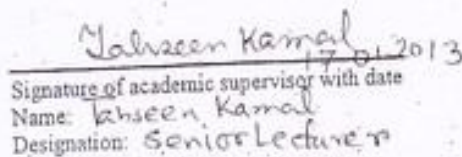 Tahseen Kamal
17.01.2013
Signature of academic supervisor with date
Name: Tahseen Kamal
Designation: Senior Lecturer